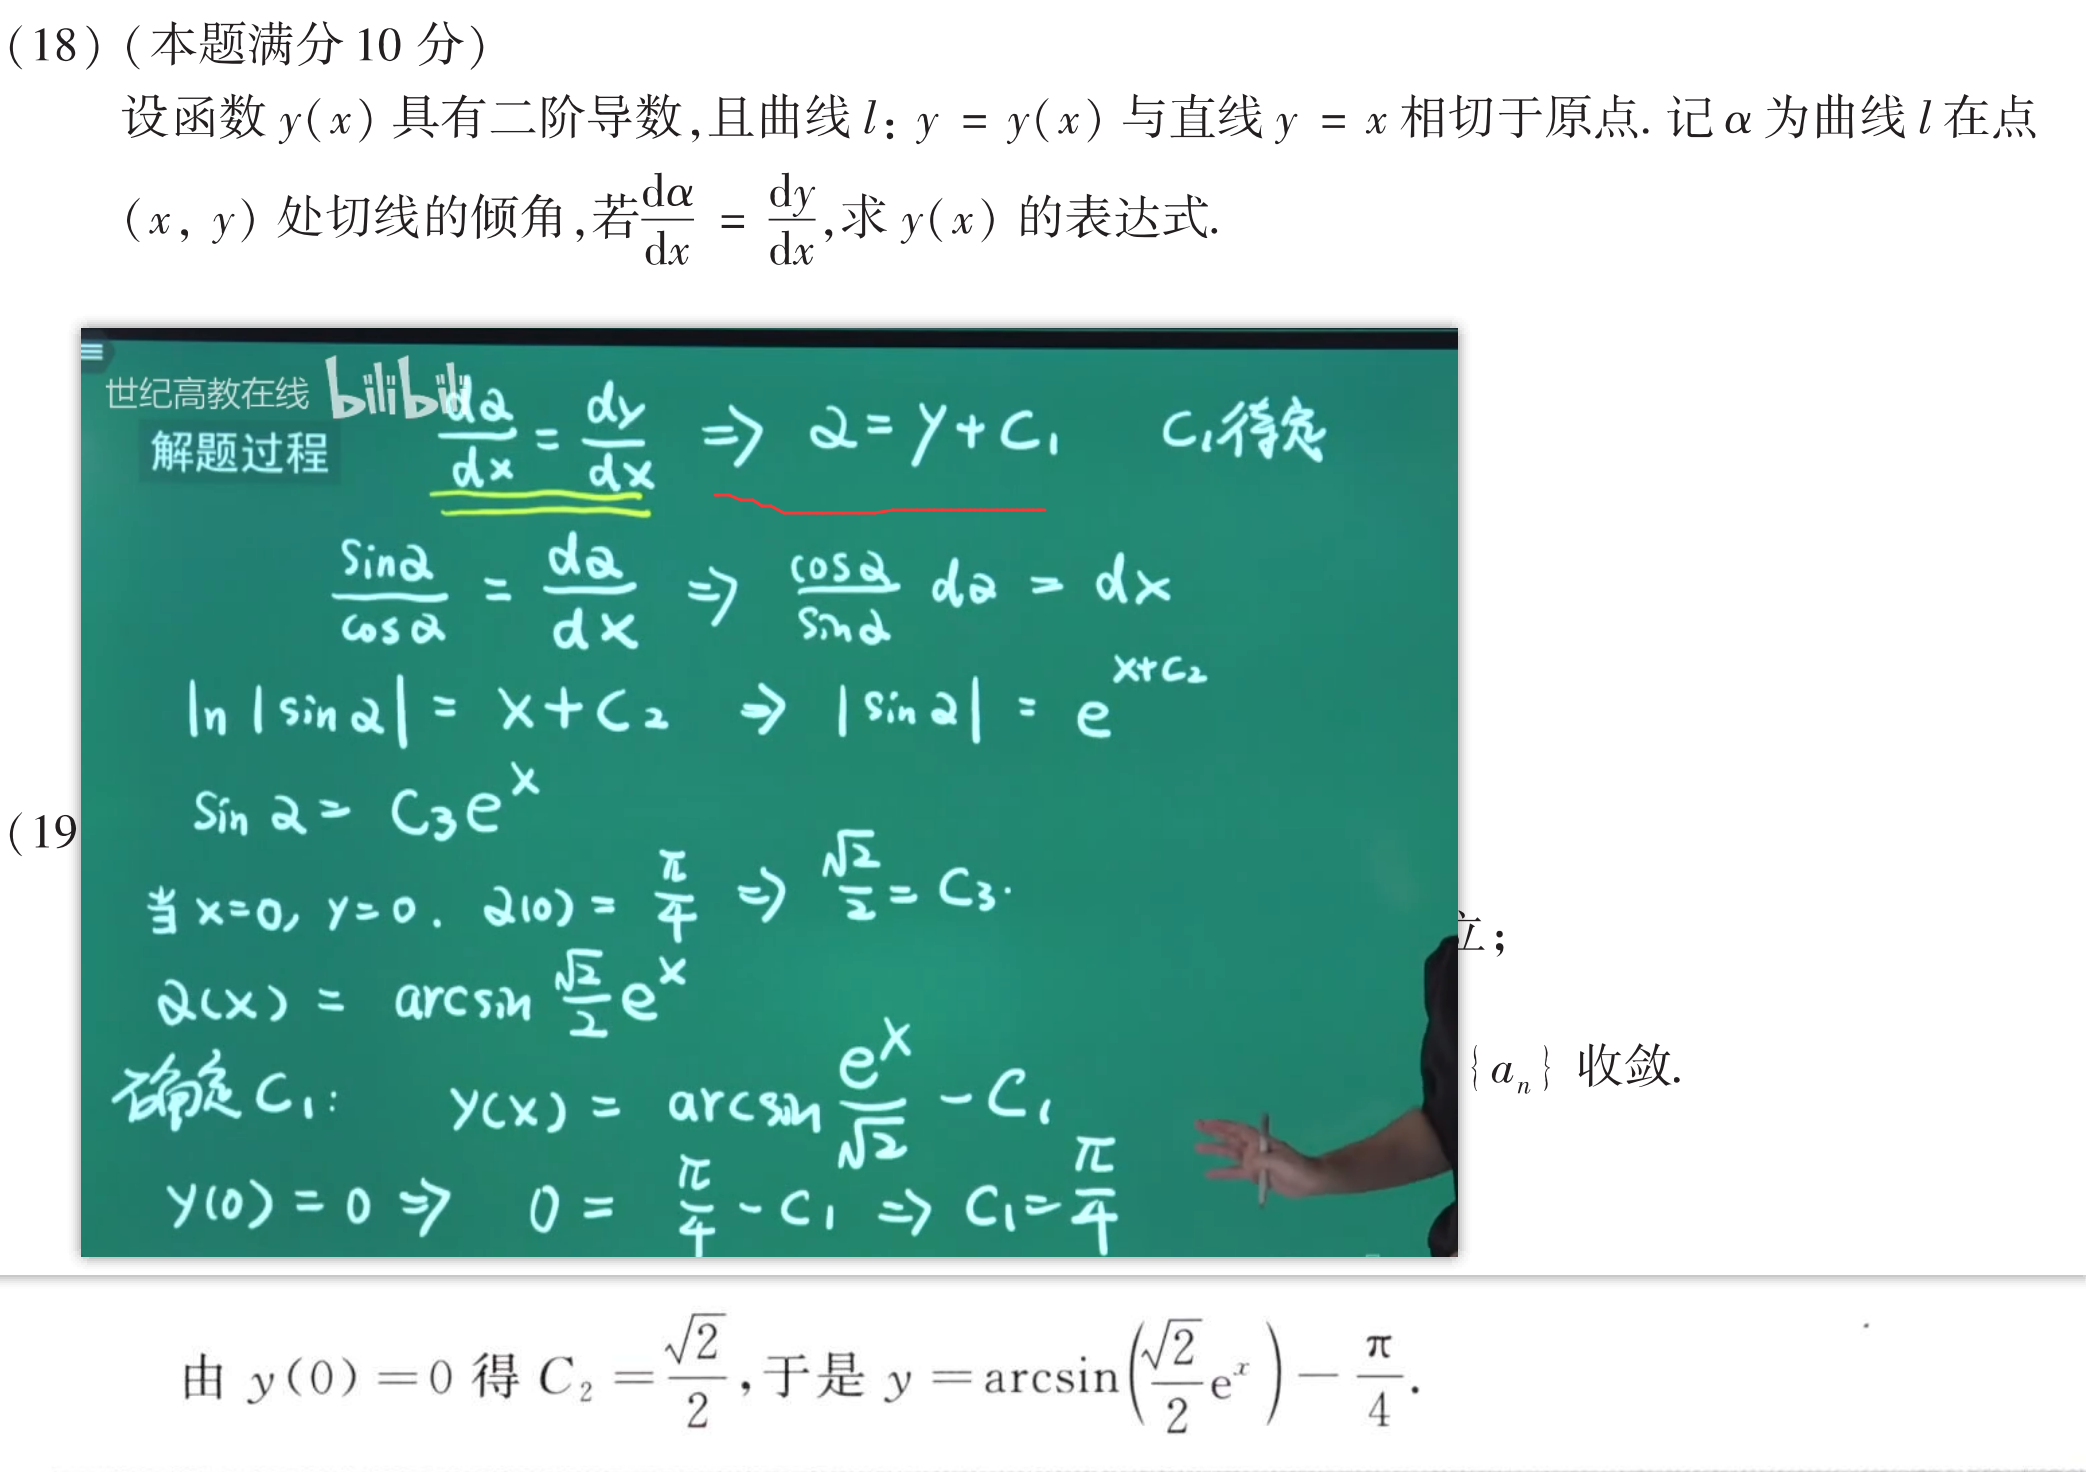 (18) (本题满分 10 分)
设函数 y(x) 具有二阶导数,且曲线 l: y = y(x) 与直线 y = x 相切于原点. 记 α 为曲线 l 在点
(x, y) 处切线的倾角,若 dα/dx = dy/dx,求 y(x) 的表达式.
世纪高教在线 bilibili
解题过程
dα/dx = dy/dx ⇒ α = y + C₁ C₁待定
sinα/cosα = dα/dx ⇒ cosα/sinα dα = dx
ln|sinα| = x + C₂ ⇒ |sinα| = e^(x+C₂)
sinα = C₃e^x
(19
当 x=0, y=0. α(0) = π/4 ⇒ √2/2 = C₃.
立;
α(x) = arcsin √2/2 e^x
{aₙ} 收敛.
确定 C₁: y(x) = arcsin e^x/√2 - C₁
y(0) = 0 ⇒ 0 = π/4 - C₁ ⇒ C₁ = π/4
由 y(0)=0 得 C₂ = √2/2,于是 y = arcsin(√2/2 e^x) - π/4.